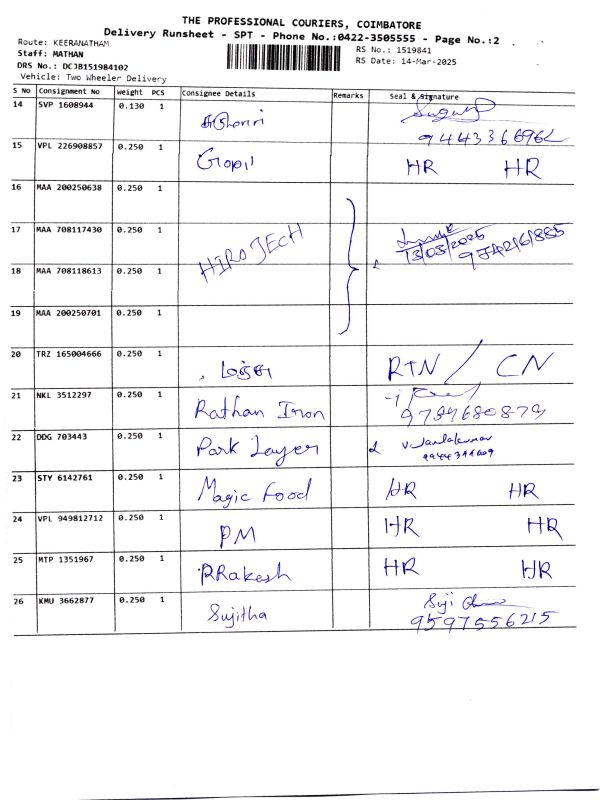 THE PROFESSIONAL COURIERS, COIMBATORE
Delivery Runsheet - SPT - Phone No.:0422-3505555 - Page No.:2
Route: KEERANATHAM
RS No.: 1519841
Staff: MATHAN
RS Date: 14-Mar-2025
DRS No.: DCJB151984102
Vehicle: Two Wheeler Delivery
S No Consignment No Weight PCS Consignee Details Remarks Seal & Signature
14 SVP 1608944 0.130 1
15 VPL 226908857 0.250 1 Gopi HR HR
16 MAA 200250638 0.250 1
17 MAA 708117430 0.250 1 HIROTECH 13/03/2025
18 MAA 708118613 0.250 1
19 MAA 200250701 0.250 1
20 TRZ 165004666 0.250 1 RTN / CN
21 NKL 3512297 0.250 1 Rathan Iron
22 DDG 703443 0.250 1 Park Layer
23 STY 6142761 0.250 1 Magic Food HR HR
24 VPL 949812712 0.250 1 PM HR HR
25 MTP 1351967 0.250 1 RRakesh HR HR
26 KMU 3662877 0.250 1 Sujitha Suji
9597556215